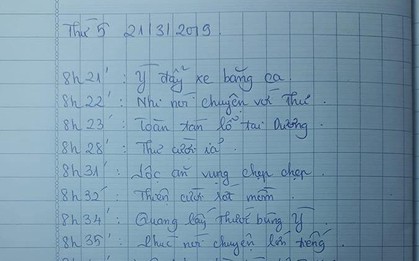 Thứ 5 21/3/2019.
8h21' : Ý đẩy xe bằng ca.
8h22' : Nhi nói chuyện với Thư.
8h23' : Toàn tán lổ tai Dương
8h28' : Thư cười ỉa
8h31' : Lộc ăn vụng chẹp chẹp.
8h32' : cười rớt mồm
8h34' : Quang lấy thước búng Ý
8h35' : nói chuyện lớn tiếng